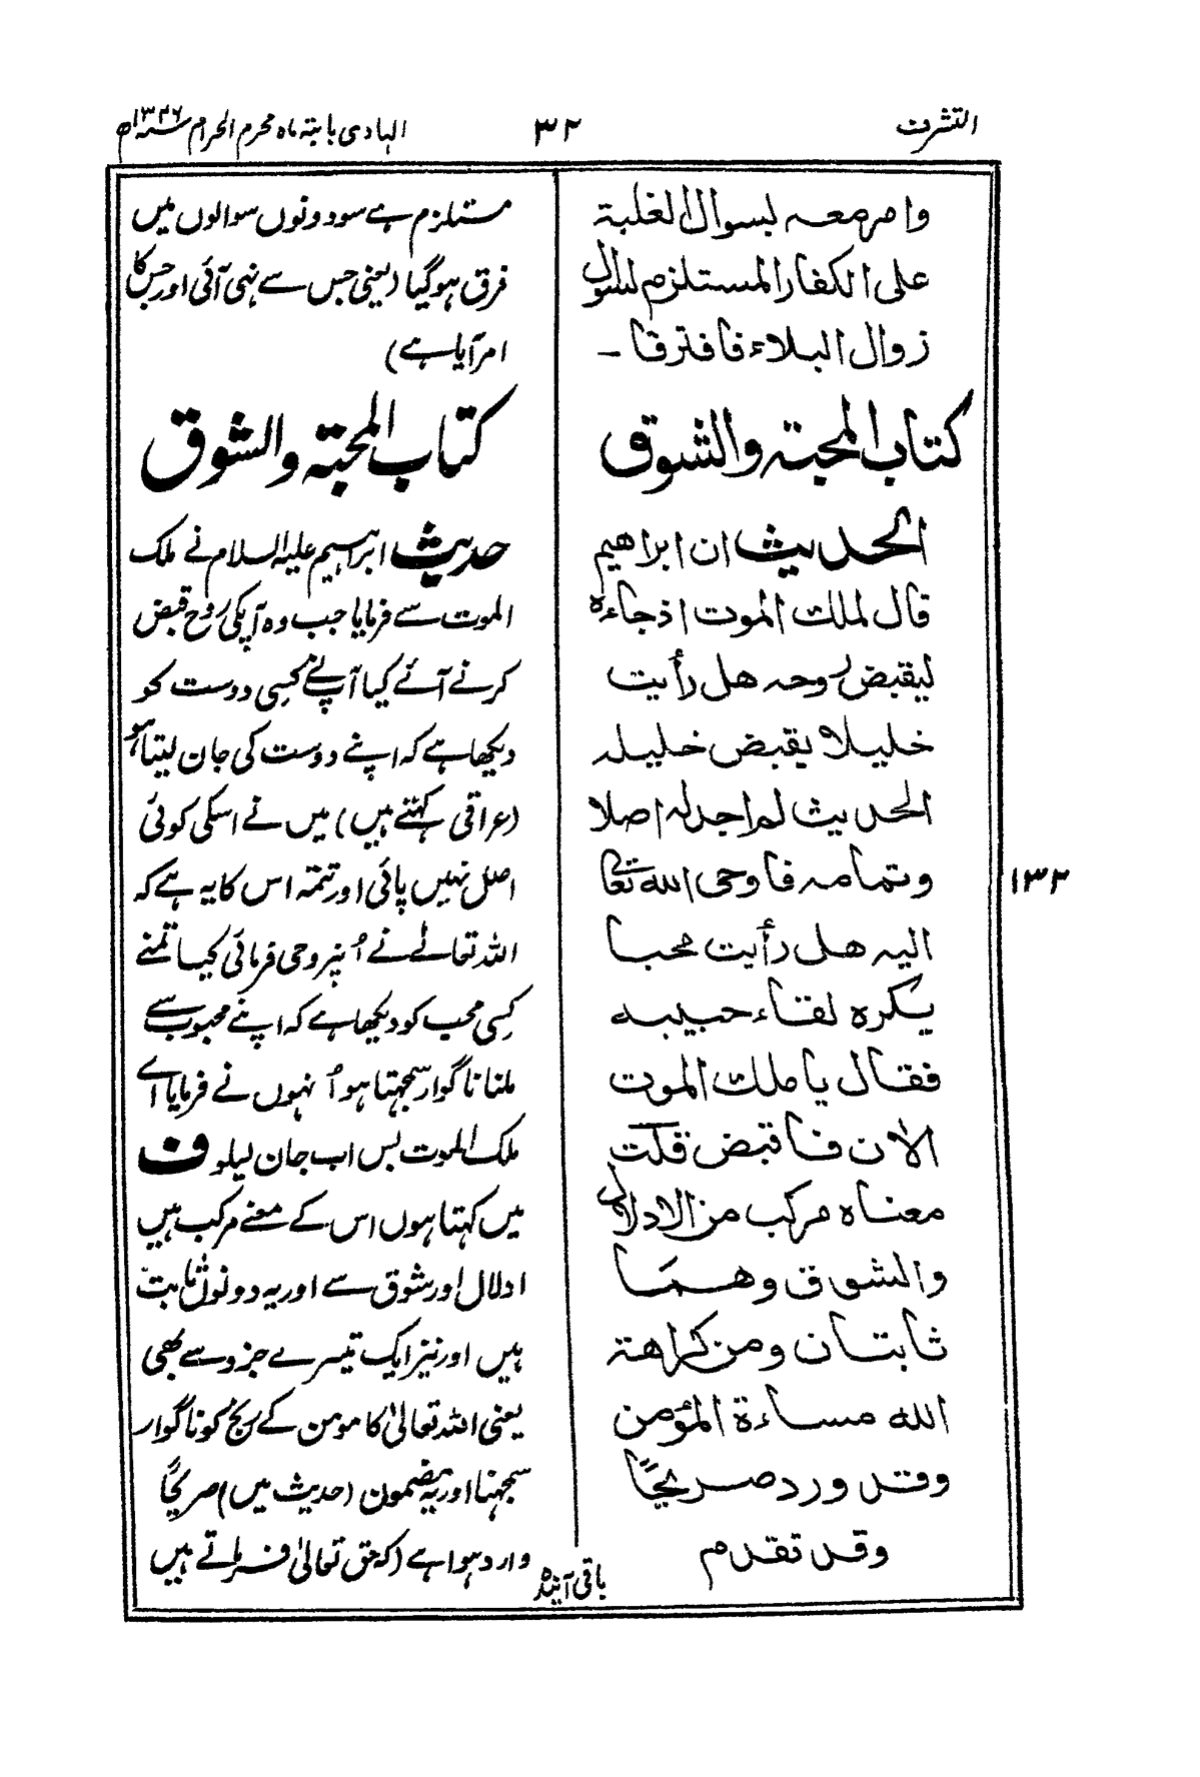 التشرف
۳۲
الہادی بابتہ ماہ محرم الحرام سنہ ۱۳۴۶ھ
وامر معہ لسوال الغلبۃ
علی الکفار المستلزم لسوال
زوال البلاء فافترقا –
کتاب المحبتہ والشوق
الحدیث ان ابراهیم
قال لملك الموت اذ جاءہ
لیقبض روحہ هل رأیت
خلیلا یقبض خلیلہ
الحدیث لم اجد لہ اصلا
وتمامہ فاوحی اللہ تعالٰی
الیہ هل رأیت محبا
یکرہ لقاء حبیبہ
فقال یا ملك الموت
الاٰن فاقبض قلت
معناہ مرکب من الادلال
والشوق وهما
ثابتان ومن کراهة
اللہ مساءۃ المؤمن
وقد ورد صریحًا
وقد تقدم
مستلزم ہے سو دونوں سوالوں میں
فرق ہوگیا (یعنی جس سے نہی آئی اور جس کا
امر آیا ہے)
کتاب المحبتہ والشوق
حدیث ابراہیم علیہ السلام نے ملک
الموت سے فرمایا جب وہ آپکی روح قبض
کرنے آئے کیا آپنے کسی دوست کو
دیکھا ہے کہ اپنے دوست کی جان لیتا ہو
(عراقی کہتے ہیں) میں نے اسکی کوئی
اصل نہیں پائی اور تتمہ اس کا یہ ہے کہ
اللہ تعالےٰ نے اُنپر وحی فرمائی کیا تمنے
کسی محب کو دیکھا ہے کہ اپنے محبوب سے
ملنا ناگوار سمجھتا ہو اُنہوں نے فرمایا اے
ملک الموت بس اب جان لیلو ف
میں کہتا ہوں اس کے معنے مرکب ہیں
ادلال اور شوق سے اور یہ دونوں ثابت
ہیں اور نیز ایک تیسرے جزو سے بھی
یعنی اللہ تعالیٰ کا مومن کے رنج کو ناگوار
سمجھنا اور یہ مضمون (حدیث میں) صریحًا
وارد ہوا ہے (کہ حق تعالیٰ فرماتے ہیں
۱۳۲
باقی آئندہ